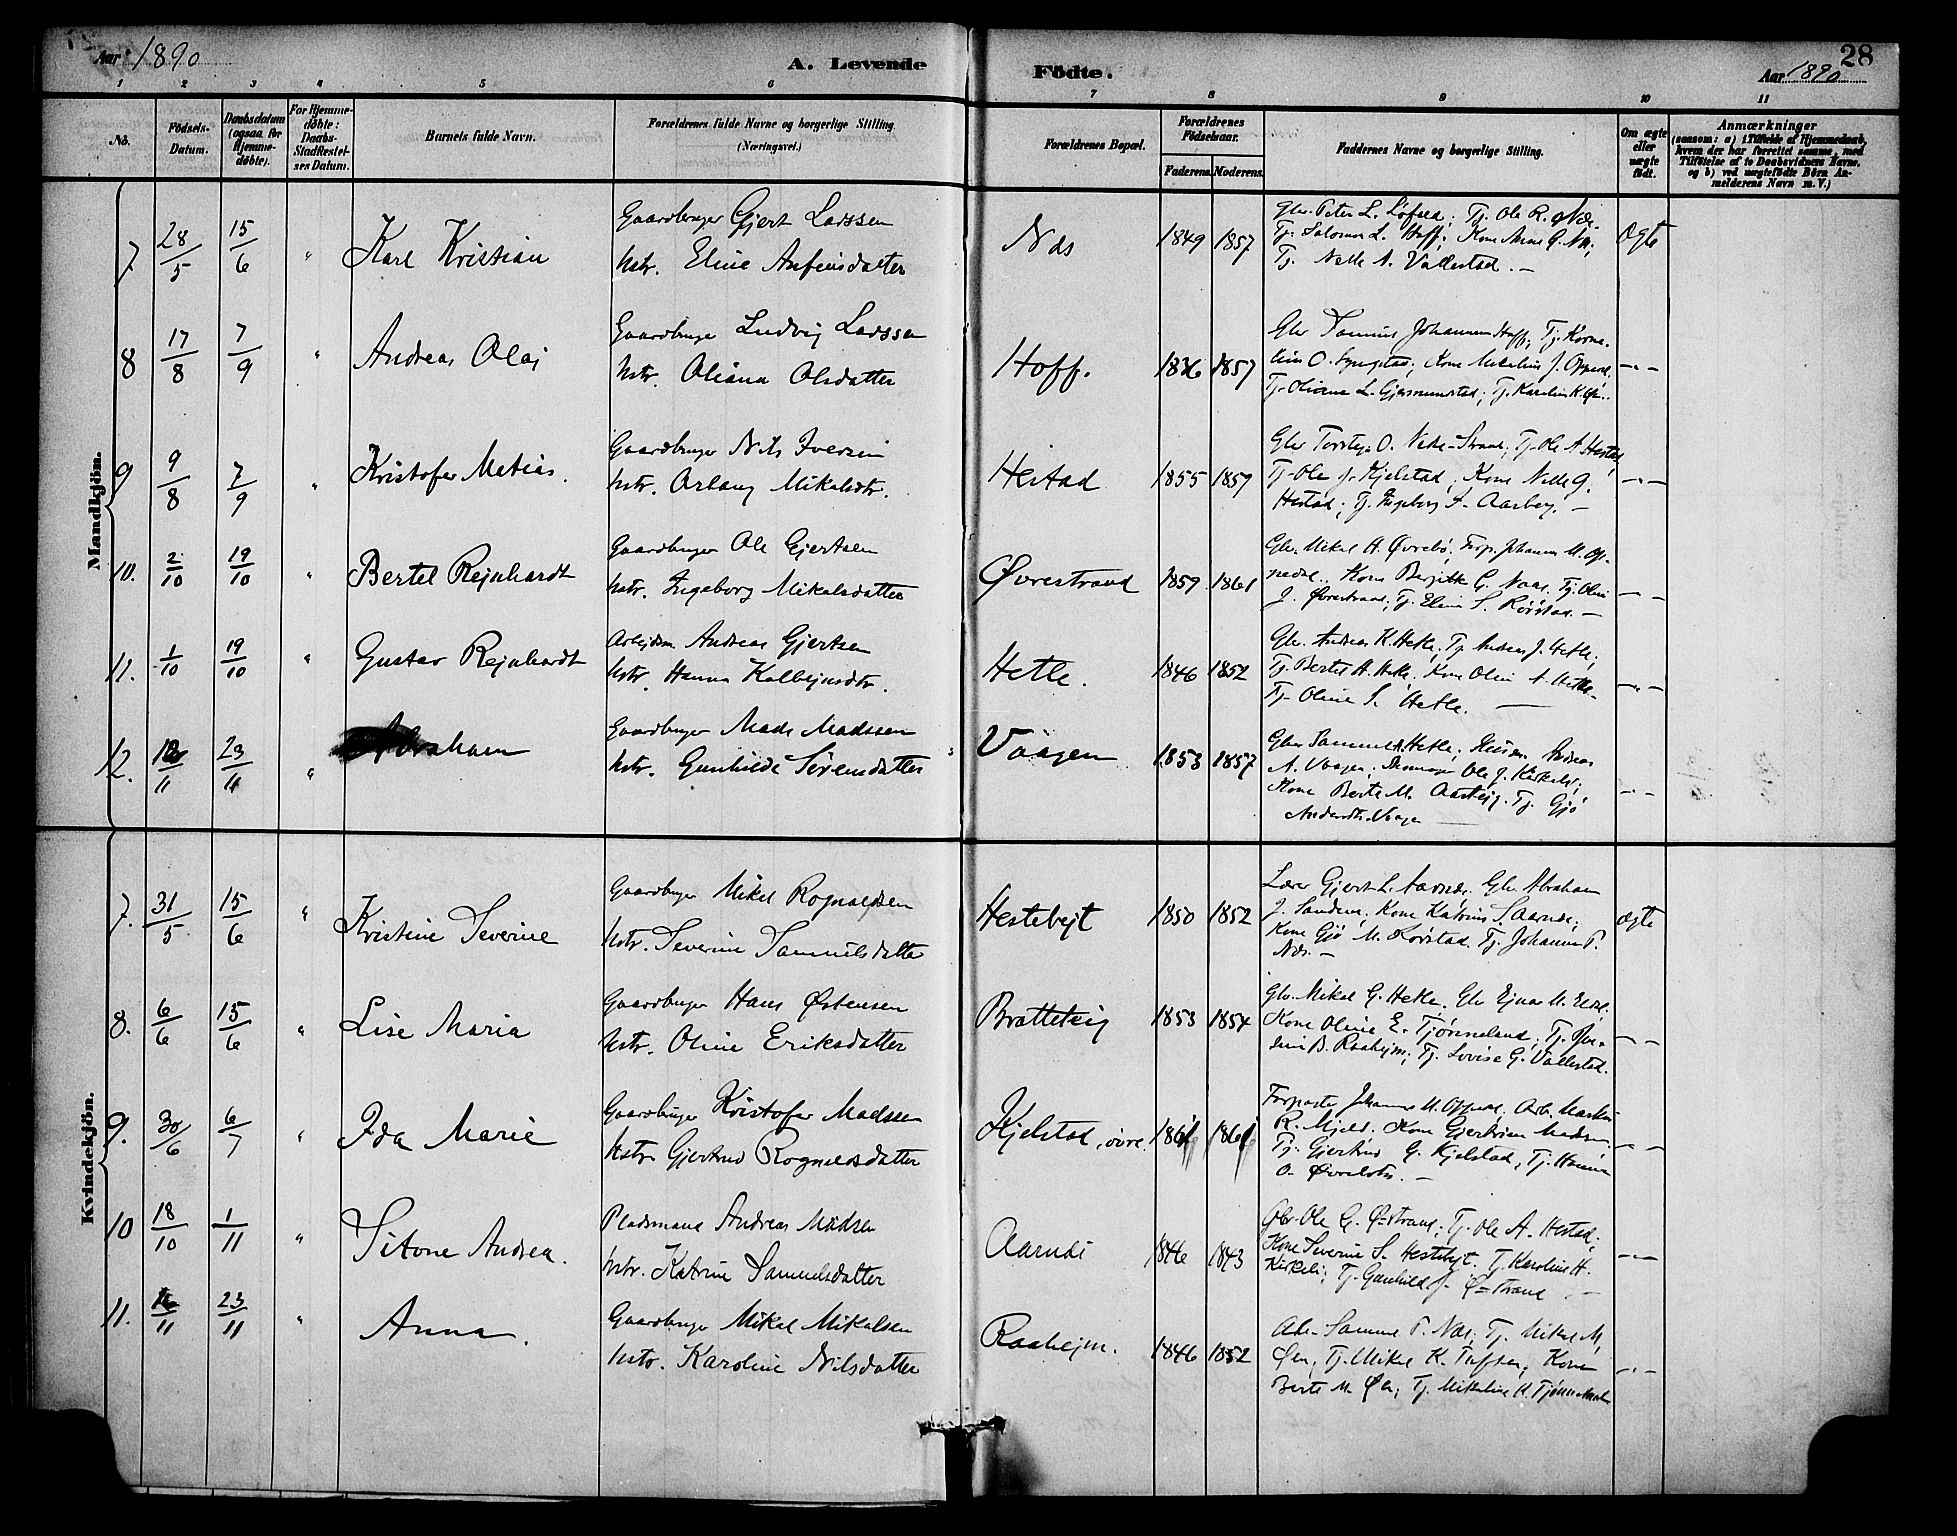 Aar 1890
A. Levende Födte.
28
Aar 1890
1 2 3 4 5 6 7 8 9 10 11
No.
Födsels-Datum.
Daabsdatum (ogsaa for Hjemme-döbte).
For Hjemme-döbte: Daabs-Stadfæstel-ses Datum.
Barnets fulde Navn.
Forældrenes fulde Navne og borgerlige Stilling (Næringsvei.)
Forældrenes Bopæl.
Forældrenes Födselsaar.
Faderens. Moderens.
Faddernes Navne og borgerlige Stilling.
Om ægte eller uægte födt.
Anmærkninger
(saasom: a) i Tilfælde af Hjemmedaab, hvem der har forrettet samme, med Tilföielse af to Daabsvidners Navne, og b) ved uægtefödte Börn An-melderens Navn m. V.)
Mandkjön.
7 28/5 15/6 " Karl Kristian
Gaardbruger Gjert Larssen
Hstr. Eline Anfinsdatter
Næs 1849 1857
Gbr. Peter L. Tj. Ole R. Næs.
Tj. Salomon L. Hoff. Kone Anne G. Næs;
Tj. Nelle A. Vallestad. —
Ægte
8 17/8 7/9 " Andreas Olaj
Gaardbruger Ludvig Larssen
Hstr. Oliana Olsdatter
Hoff. 1836 1857
Gbr Johannes Hoff; Tj. Korne-
O. Kone Mikeline J.
Tj. Oliane L. Gjesmunstad; Tj. Karoline K.
— " —
9 9/8 7/9 " Kristofer Matias.
Gaardbruger Nils Iversen
Hstr. Arlaug Mikalsdtr.
Hestad 1855 1859
Gbr O. Tj. Ole A. Hestad;
Tj. Ole J. Kjelstad; Kone Nelle J.
Hestad; Tj. Ingeborg S. Aarberg. —
— " —
10. 2/10 19/10 " Bertel Rejnhardt
Gaardbruger Ole Gjertsen
Hstr. Ingeborg Mikalsdatter
Øvrestrand 1859 1861
Gbr. Mikal H. Øvrebø; Forp. Johannes M. Op-
pedal. Kone Bergitte G. Naas, Tj. Olin
J. Øvrestrand; Tj. Eline S. Rørstad. —
— " —
11. 1/10 19/10 " Gustav Rejnhardt
Arbejdsm. Andreas Gjertsen
Hstr. Hanna Kolbejnsdtr.
Hetle. 1846 1852
Gbr. Andreas K. Hetle, Tj. Andreas J. Hetle;
Tj. Bertel A. Hetle. Kone Olin A. Hetle.
Tj. Oline S. Hetle. —
— " —
12. 11 23/11 " Abraham
Gaardbruger Mads Madssen
Hstr. Gunhilde Sørensdatter
Vaagen 1853 1857
Gbr Samuel A. Hetle; Andreas
A. Vaagen; Ole J. Kirkeli;
Kone Berte M. Tj. Gjø
Vaagen —
— " —
Kvindekjön.
7. 31/5 15/6 " Kristine Severine
Gaardbruger Mikel Rognaldsen
Hstr. Severine Samuelsdatter
Hestebejt 1850 1852
Lærer Gjert L. Gbr. Abraham
J. Kone Katrine S. Aarnde;
Kone Gjø M. Rørstad, Tj. Johanne P.
Næs. —
ægte
8. 6/6 15/6 " Lise Maria
Gaardbruger Hans Østensen
Hstr. Oline Eriksdatter
Bratteteig 1853 1854
Gbr. Mikal G. Hetle. Gbr Ejnar M.
Kone Oline E. Tjønneland; Tj.
B. Raahejm; Tj. Lovise G. Vallestad.
— " —
9. 30/6 6/7 " Ida Marie
Gaardbruger Kristofer Madssen
Hstr. Gjertrud Rognaldsdatter
Kjelstad, övre. 1861 1861
Forpagter Johannes M. Oppedal. Arb.
R. Mjeld. Kone
Tj. Gjertrud G. Kjelstad, Tj. Hanna
O. —
— " —
10 18/10 1/11 " Sitone Andrea.
Pladsmand Andreas Madsen
Hstr. Katrine Samuelsdatter
Aarndi 1846 1843
Gbr. Ole G. Ø-strand; Tj. Ole A. Hestad.
Kone Severine S. Hestebejt. Tj. Karoline H.
Kirkeli; Tj. Gunhild J. Ø-strand —
— " —
11. 16/11 23/11 " Anna.
Gaardbruger Mikal Mikalsen
Hstr. Karoline Nilsdatter
Raahejm. 1846 1852
Samuel P. Næs; Tj. Mikal M.
Øen; Tj. Mikal K. Kone
Berte M. Øen; Tj. Mikeline H.
— " —